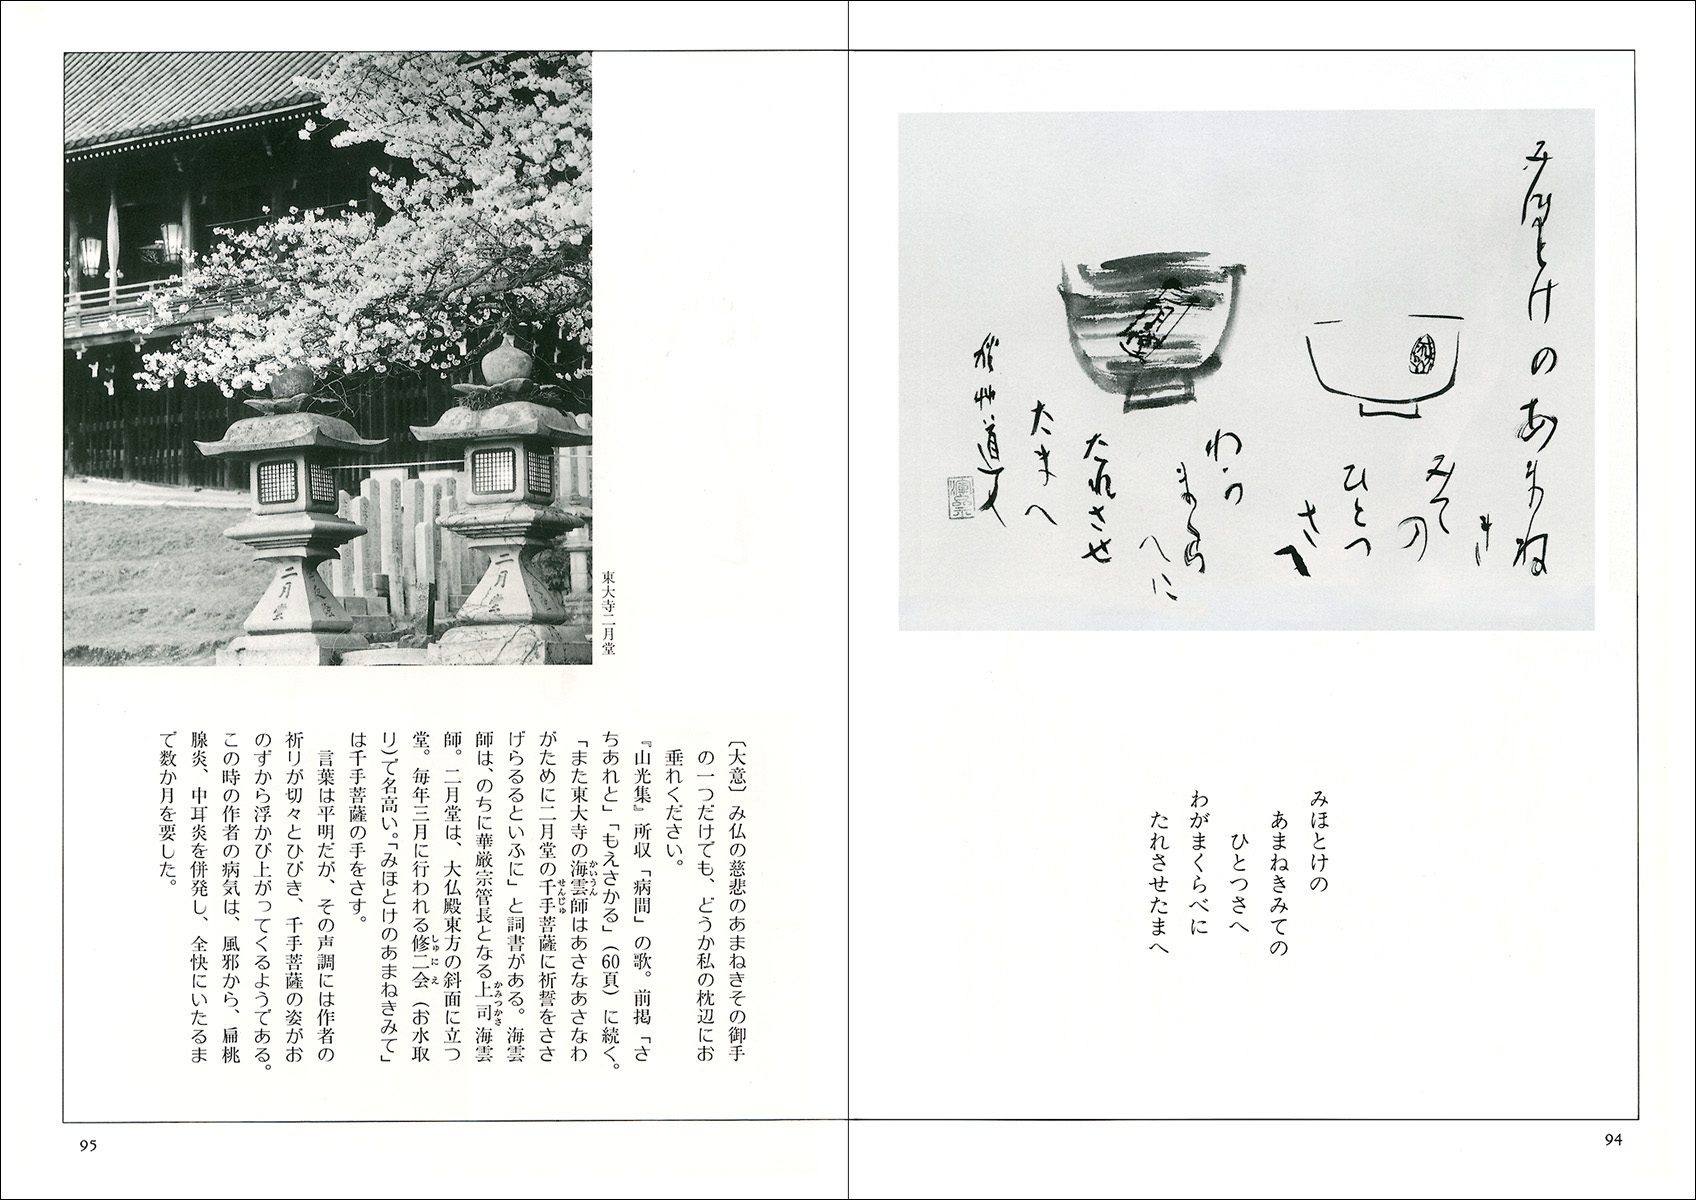 みほとけのあまね
き
みての
ひとつ
さへ
わか
まくら
へに
たれさせ
たまへ
秋艸道人
みほとけの
あまねきみての
ひとつさへ
わがまくらべに
たれさせたまへ
94
二月堂
二月堂
東大寺二月堂
〔大意〕み仏の慈悲のあまねきその御手
の一つだけでも、どうか私の枕辺にお
垂れください。
『山光集』所収「病間」の歌。前掲「さ
ちあれと」「もえさかる」（60頁）に続く。
「また東大寺の海雲師はあさなあさなわ
がために二月堂の千手菩薩に祈誓をささ
げらるるといふに」と詞書がある。海雲
師は、のちに華厳宗管長となる上司海雲
師。二月堂は、大仏殿東方の斜面に立つ
堂。毎年三月に行われる修二会（お水取
り）で名高い。「みほとけのあまねきみて」
は千手菩薩の手をさす。
言葉は平明だが、その声調には作者の
祈りが切々とひびき、千手菩薩の姿がお
のずから浮かび上がってくるようである。
この時の作者の病気は、風邪から、扁桃
腺炎、中耳炎を併発し、全快にいたるま
で数か月を要した。
かいうん
せんじゅ
かみつかさ
しゅにえ
95